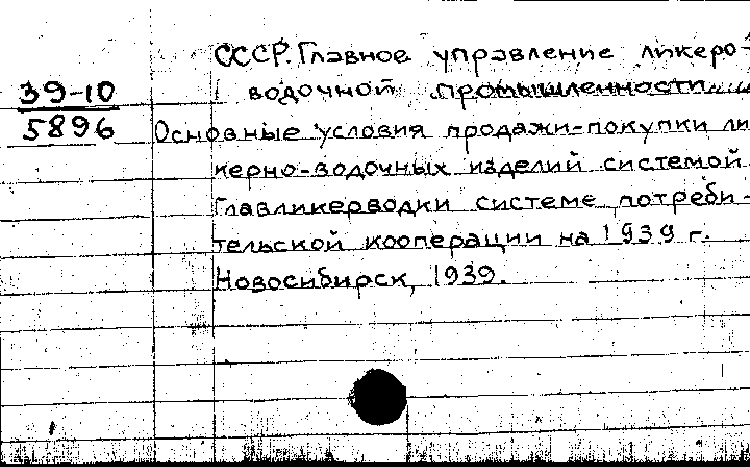 СССР. Главное управление ликеро-
водочной промышленности
39-10
5896
Основные условия продажи-покупки ли
керно-водочных изделий системой
Главликерводки системе потреби-
тельской кооперации на 1939 г.
Новосибирск, 1939.